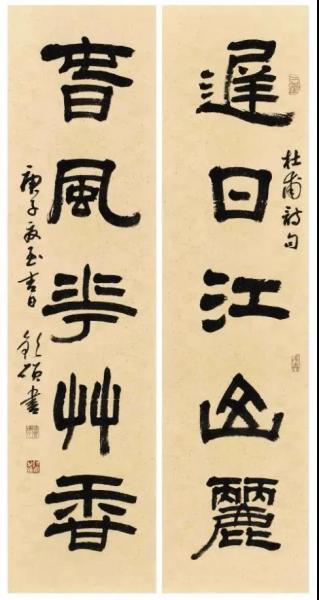 遲日江山麗
杜甫詩句
春風花艸香
庚子夏至吉日 書